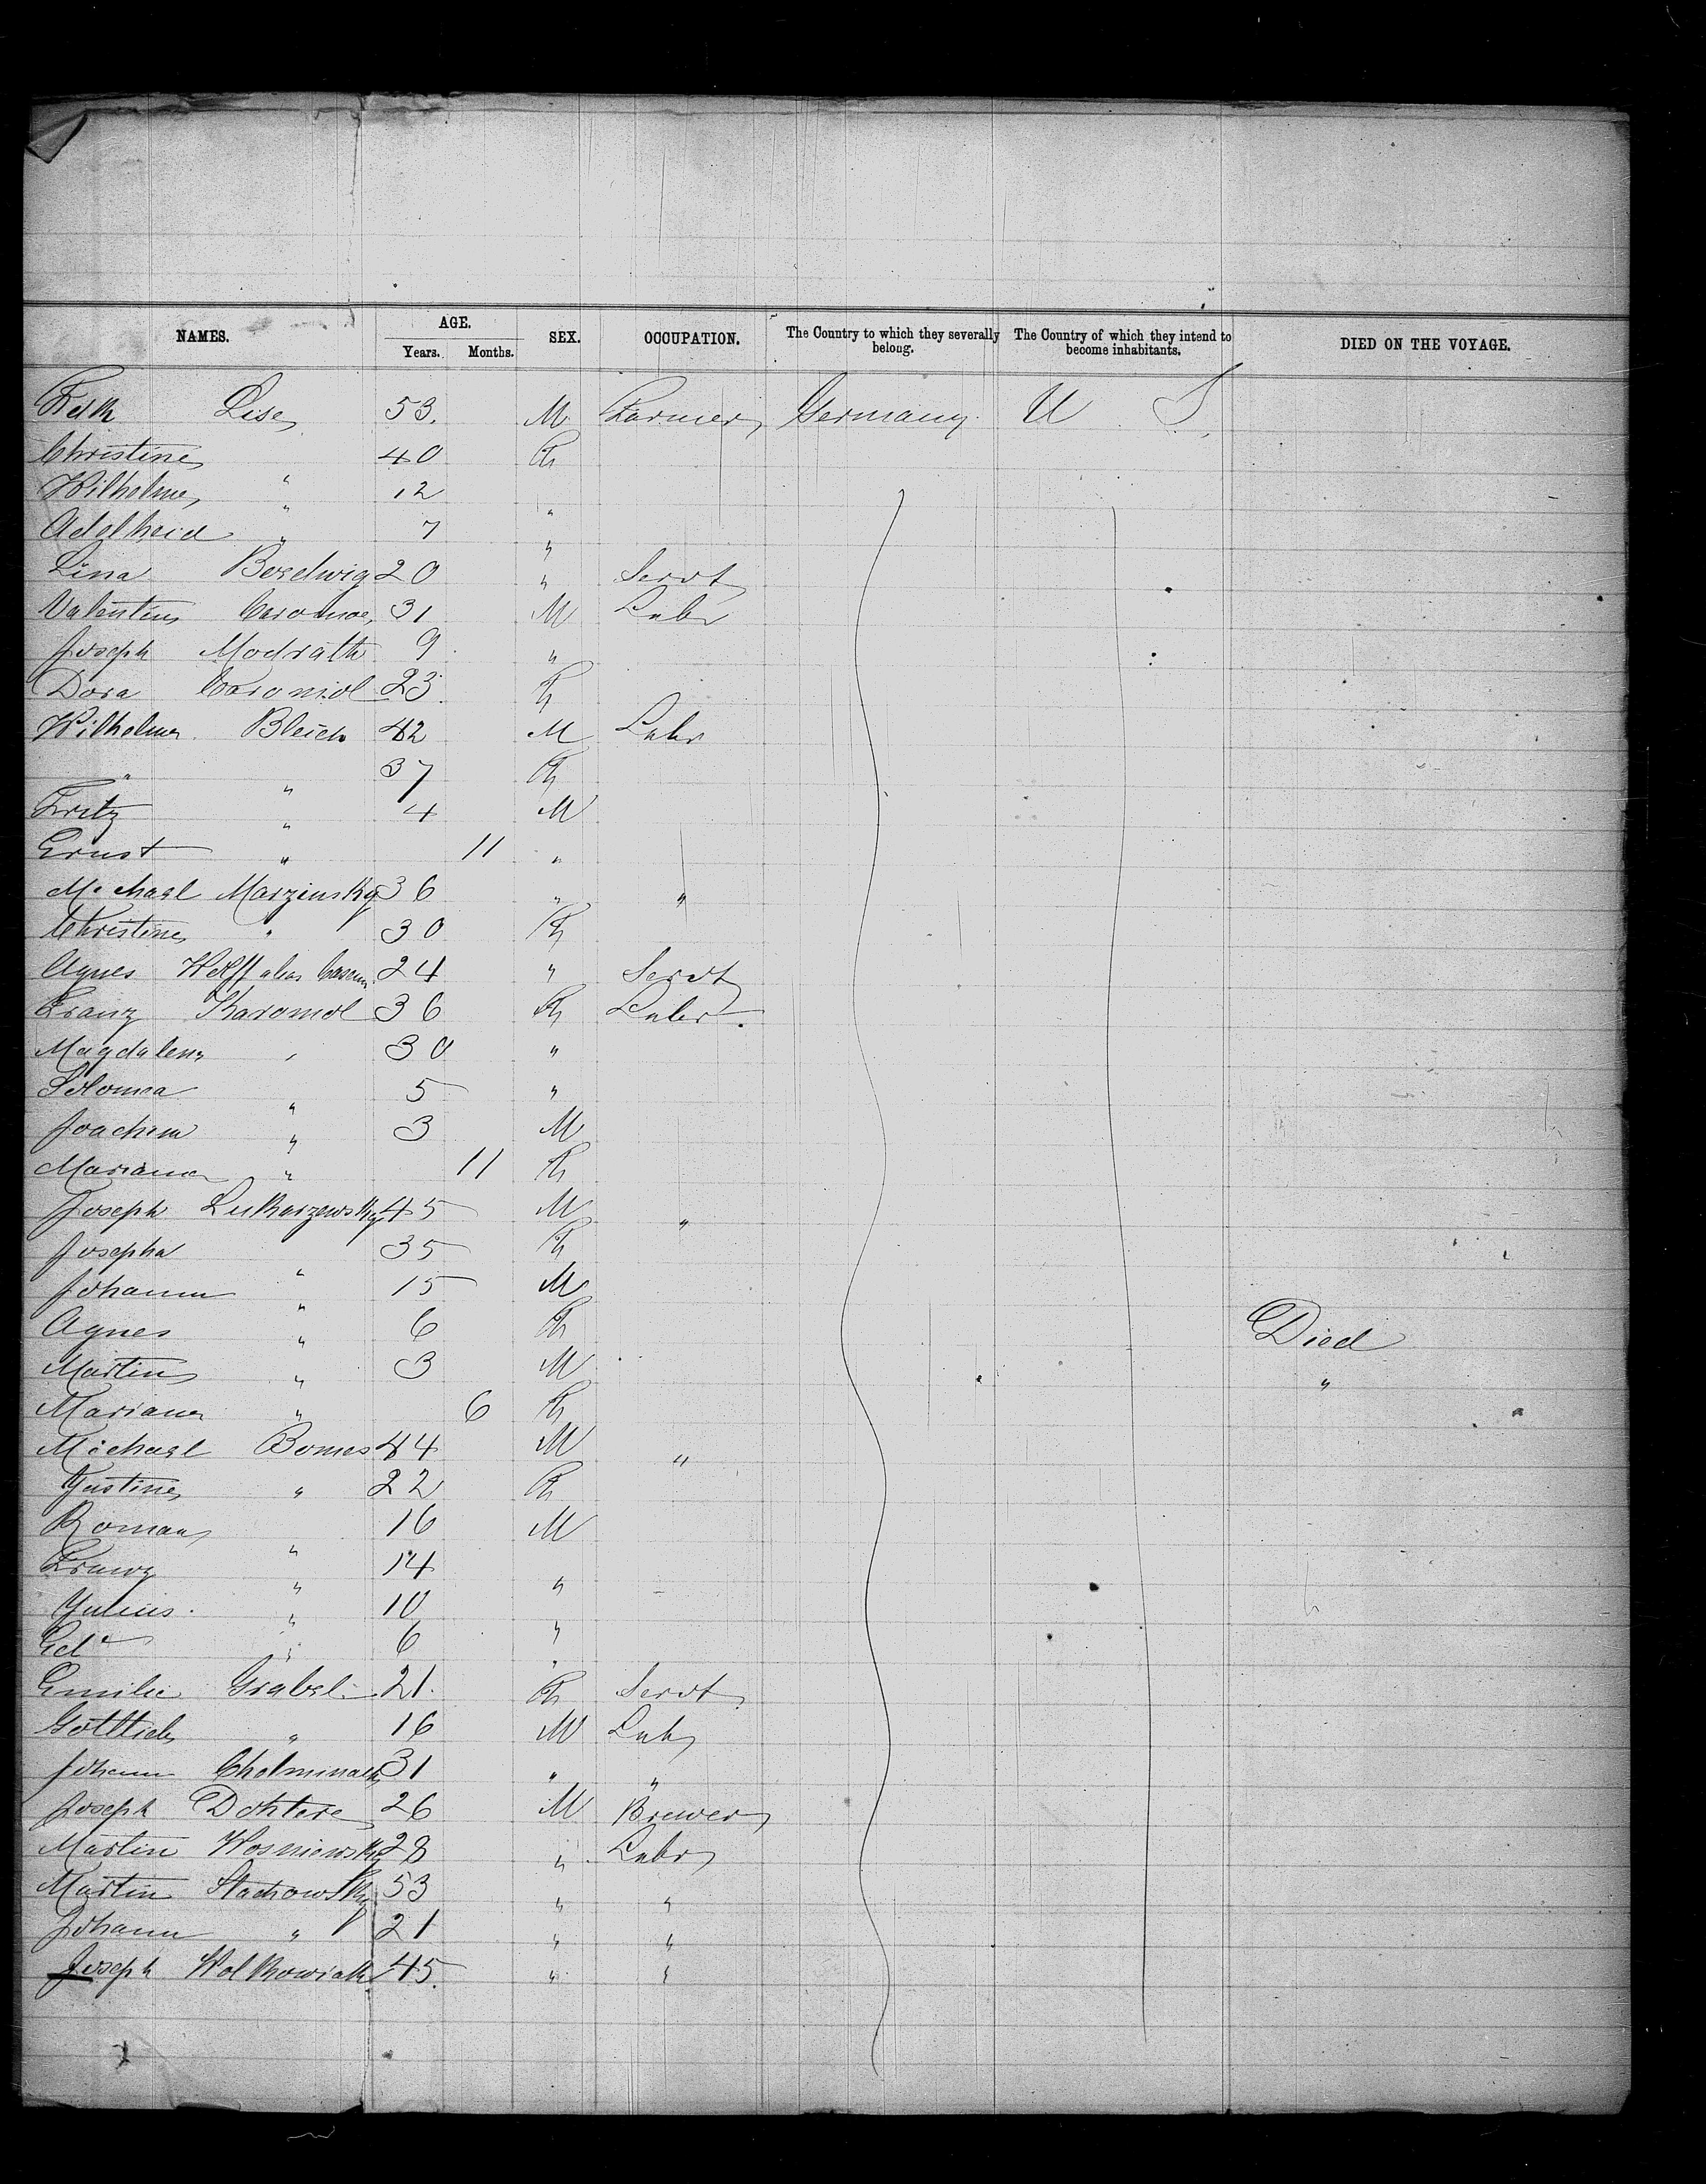 NAMES. AGE. SEX. OCCUPATION. The Country to which they severally belong. The Country of which they intend to become inhabitants. DIED ON THE VOYAGE.
Years. Months.
Lise 53. M Farmer Germany U S
Christine 40 F
Wilhelme " 12 "
Adelheid " 7 "
Lina 20 " Servt
Valentin 31 M Labr
Joseph Modrath 9 "
Dora Caromol 23 F
Wilhelm Bleich 42 M Labr
" " 37 F
Fritz " 4 M
Ernst " 11 "
Michael Marzinsky 36 " "
Christine " 30 F
Agnes Wolff alias 24 " Servt
Franz Karomol 36 F Labr.
Magdalena " 30 "
Solomea " 5 "
Joachim " 3 M
Mariana " 11 F
Joseph Lukarzewsky 45 M "
Josepha " 35 F
Johann " 15 M
Agnes " 6 F Died
Martin " 3 M "
Mariana " 6 F
Michael Bomes 44 M "
Justine " 22 F
Roman " 16 M
Franz " 14 "
Julius " 10 "
Ed " 6 "
Emilie Grabel 21. F Servt
Gottlieb " 16 M Lab
Johann 31 " "
Joseph 26 M Brewer
Martin Wosniewsky 28 " Labr
Martin Stachowsky 53 " "
Johann " 21 " "
Joseph Wolkowiak 45. " "